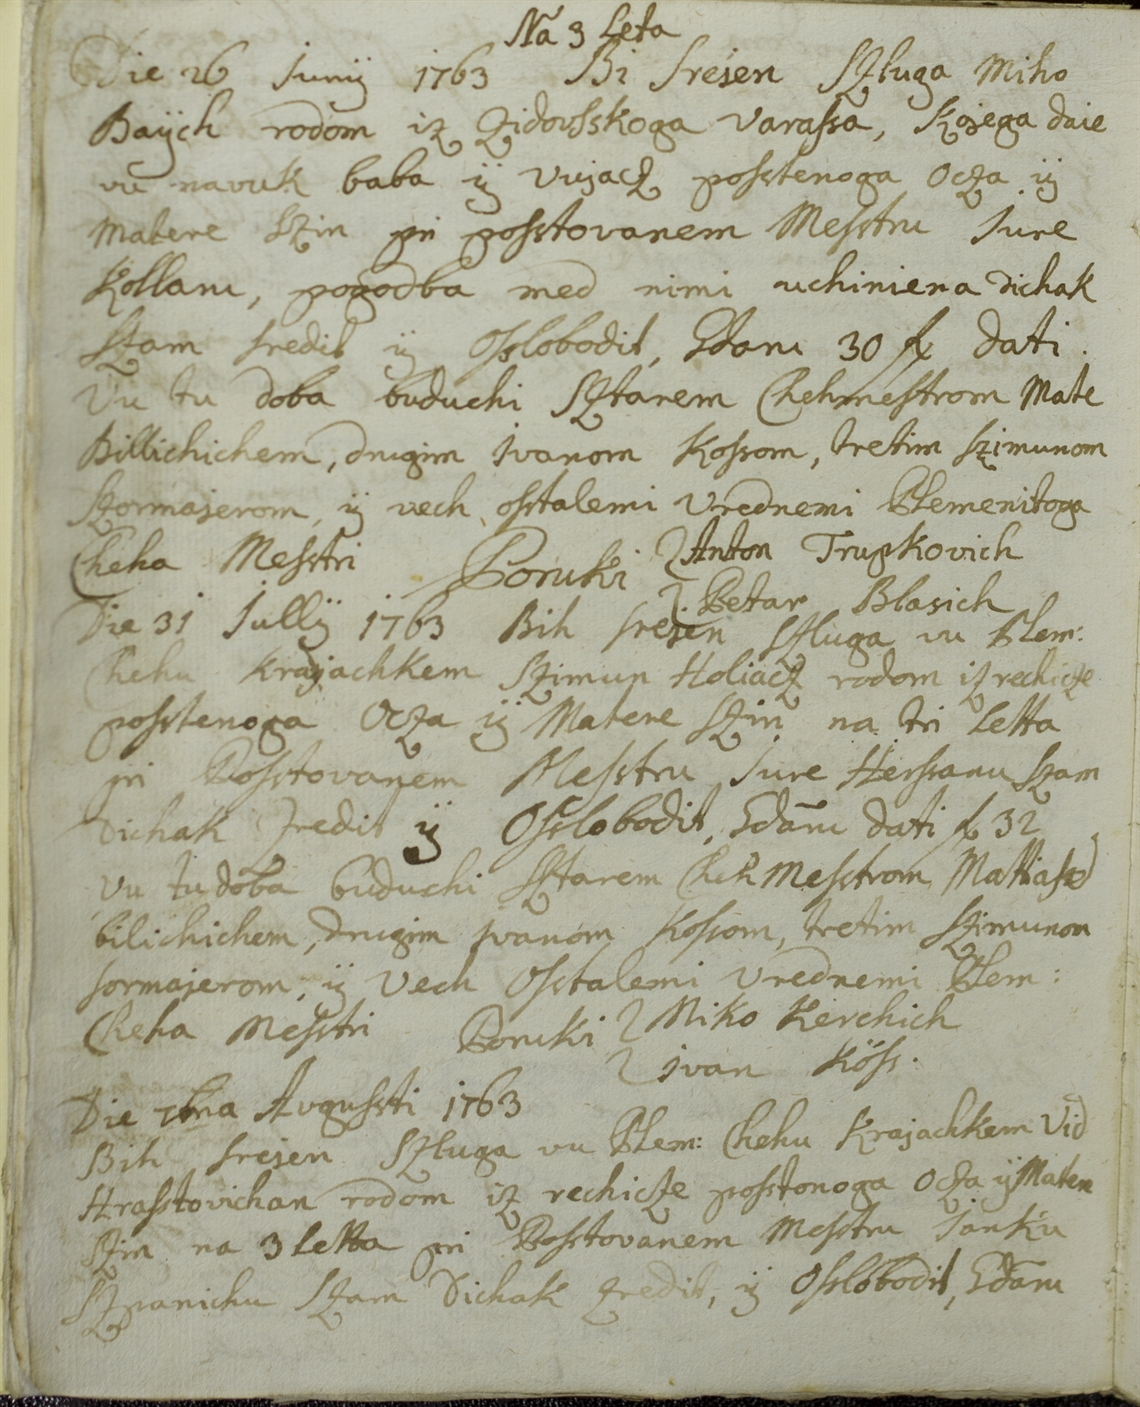 Na 3 Leta
Die 26 Junÿ 1763 Bi srejen Szluga Miho
Baÿch rodom iz Zidovsskoga Varassa, kojega daie
vu navuk baba ÿ Vujacz posstenoga Ocza ÿ
Matere Szin pri posstovanem Messtru Jure
Kollaru, pogodba med nimi uchiniena Dichak
Szam sredit ÿ Osslobodit, Gdaru 30 fx dati.
Vu tu doba buduchi Sztarem Chehmestrom Mate
Billichichem, drugim Ivanom Kossom, tretim Szimunom
Stormajerom, ÿ vech osstalemi Vrednemi Plemenitoga
Cheha Messtri Poruki Anton Trupkovich
Petar Blasich
Die 31 Jullÿ 1763 Bih srejen Szluga vu Plem:
Chehu krajachkem Szimun Holiacz rodom iz rechicze
posstenoga Ocza ÿ Matere Szin na tri Letta
pri Posstovanem Messtru Jure Herssanu Szam
Dichak sredit ÿ Osslobodit, Gdaru dati fx 32
Vu tu doba buduchi Sztarem Cheh Messtrom Mattiass
bilichichem, drugim Ivanom Kossom, tretim Szimunom
sormajerom, ÿ Vech Osstalemi Vrednemi Plem:
Cheha Messtri Poruki Miko Kerchich
Ivan Köss.
Die 7bna Avgussti 1763
Bih srejen Szluga vu Plem: Chehu Krajachkem Vid
Hrasstovichan rodom iz rechicze posstonoga Ocza ÿ Matere
Szin na 3 Letta pri Posstovanem Messtru Janku
Szpanichu Szam Dichak zredit, ÿ Osslobodit, Gdaru